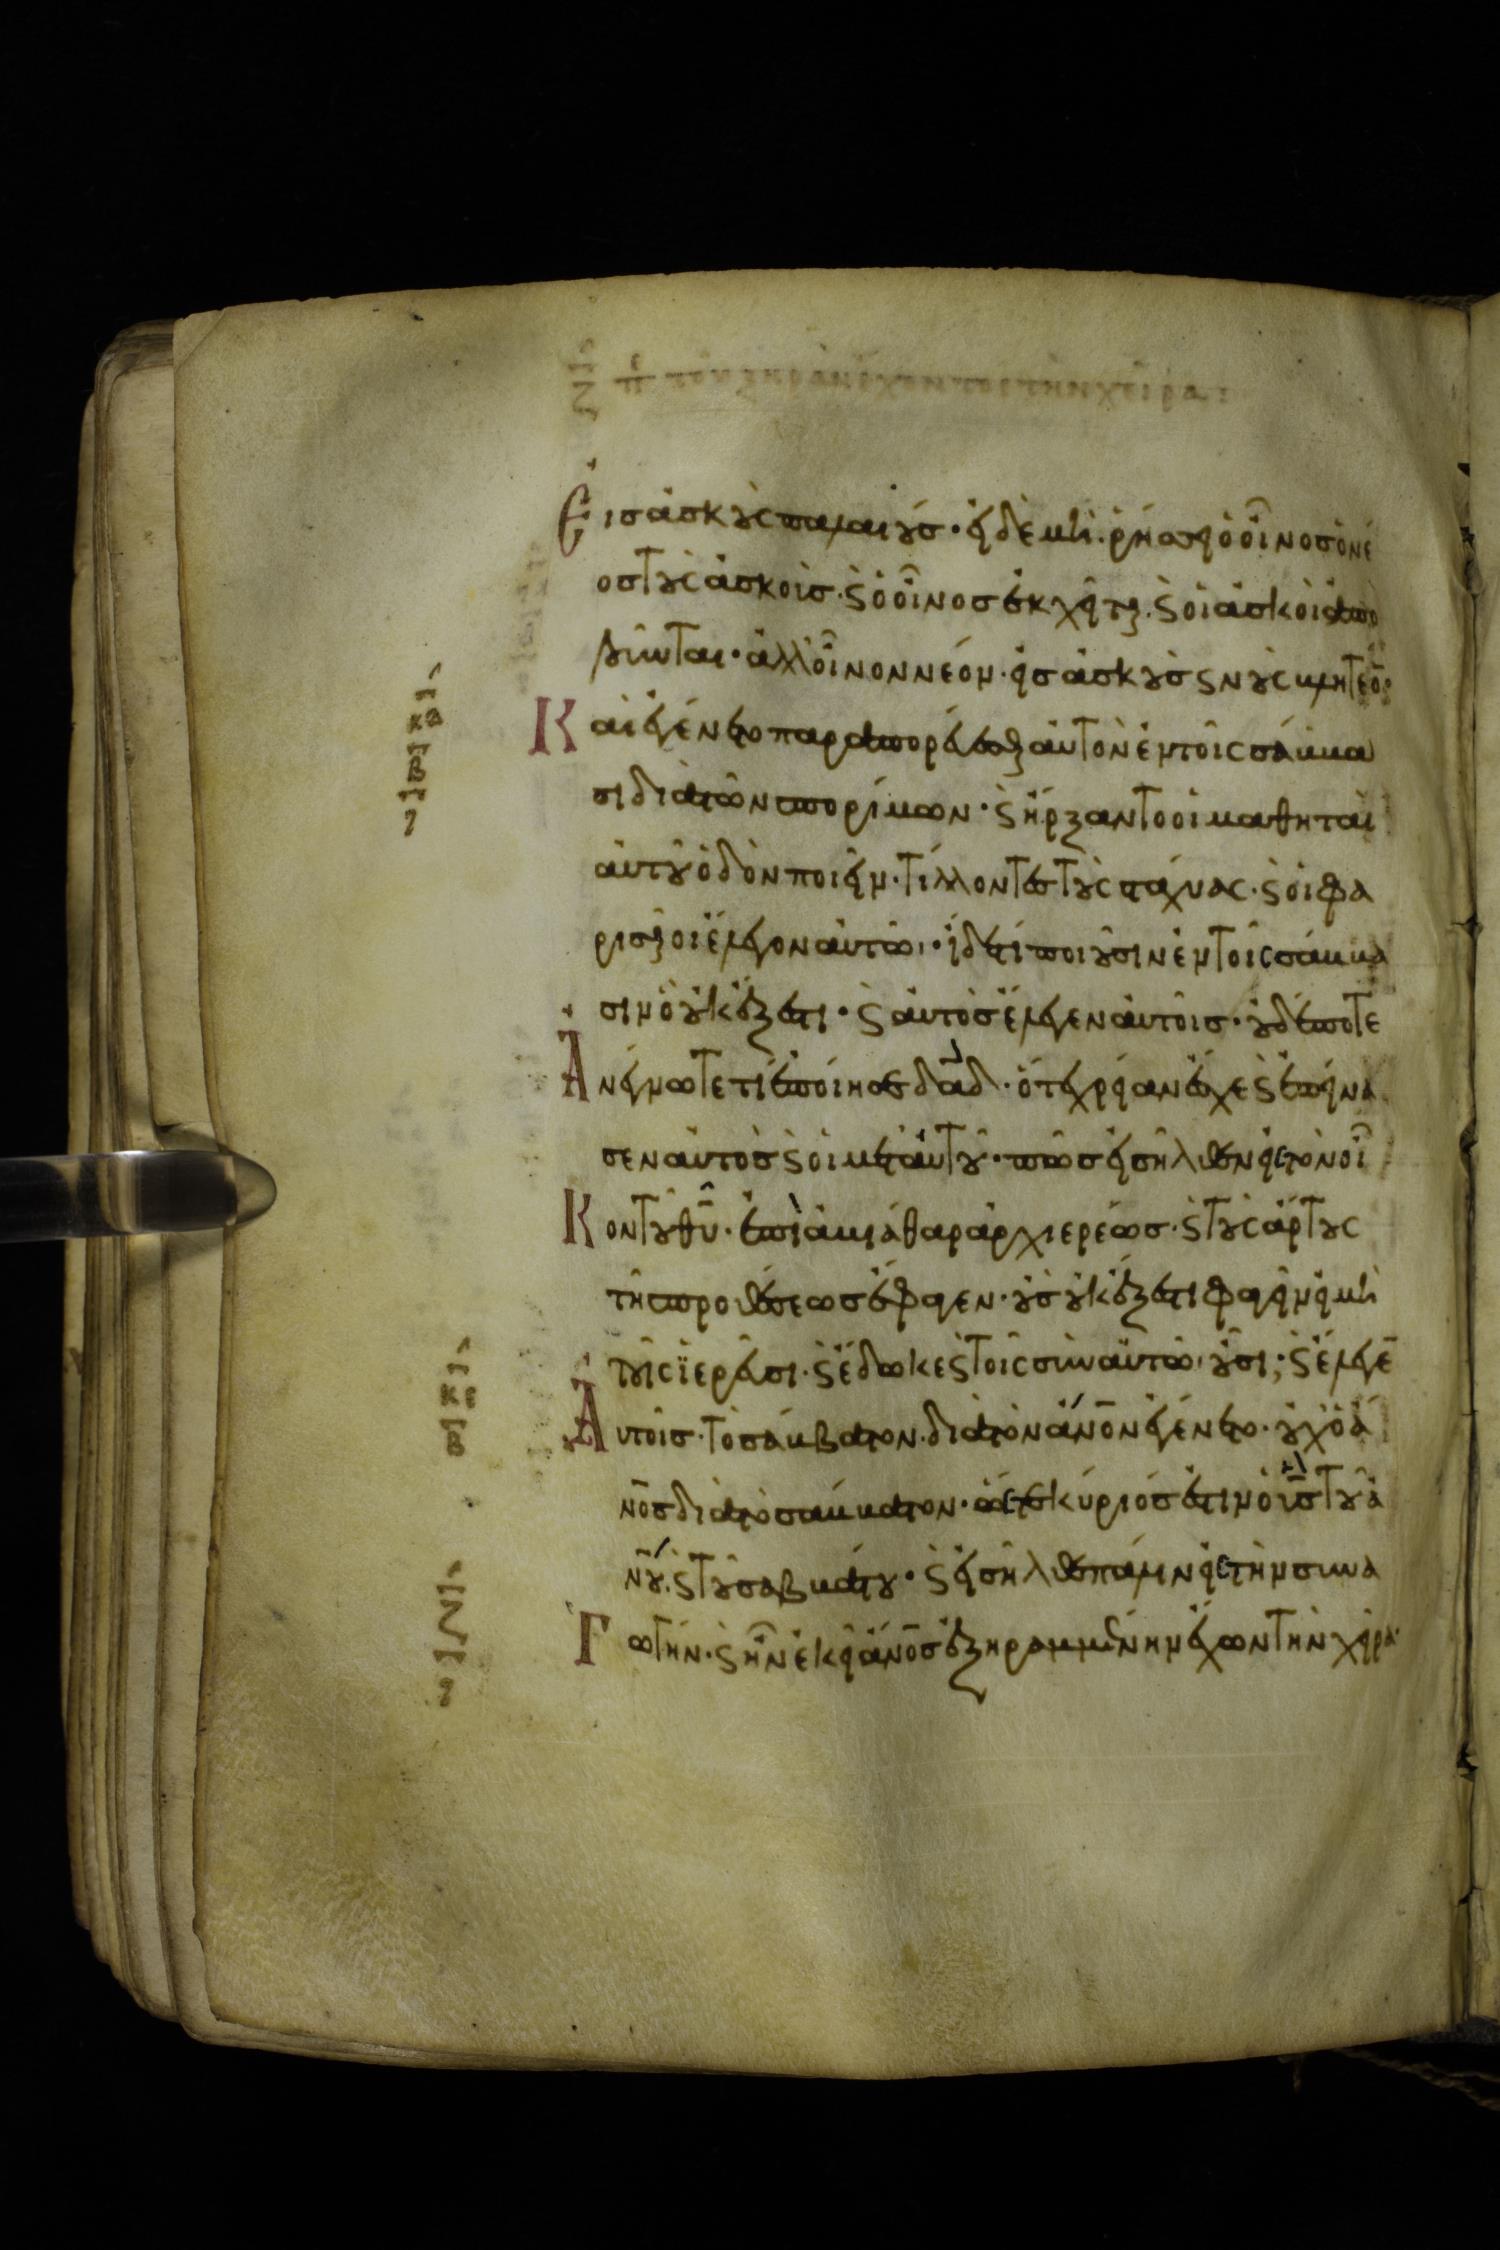 Εισ ἀσκοὺς παλαιούσ· εἰ δὲ μὴ. ῥήσσει ὁ οἶνοσ ὁ νέ
οσ τοὺς ἀσκοὺσ. ϛ ὁ οἶνοσ ἐκχεῖται. ϛ οἱ ἀσκοὶ ἀπο
λοῦνται· ἀλλ οἶνον νέον. εἰσ ἀσκοὺσ
Καὶ ἐγένετο παραπορεύεσθαι αὐτὸν ἐν τοῖς σάββα
σι διὰ τῶν σπορίμων· ϛ ἤρξαντο οἱ μαθηταὶ
αὐτοῦ ὁδὸν ποιεῖν. τίλλοντεσ τοὺς στάχυας. ϛ οἱ φα
ρισαῖοι ἔλεγον αὐτῶ· ἴδε τί ποιοῦσιν ἐν τοῖς σάββα
σιν ὃ οὐκ ἔξεστι· ϛ αὐτὸσ ἔλεγεν αὐτοῖσ· οὐδέποτε
Ανέγνωτε τί ἐποίησε δαδ. ὅτε χρείαν ἔσχε ϛ ἐπείνα
σεν αὐτὸσ ϛ οἱ μετ αὐτοῦ· πῶσ εἰσῆλθεν εἰς τὸν οἶ
Κον τοῦ θυ. ἐπὶ ἀβιάθαρ ἀρχιερέωσ. ϛ τοὺς ἄρτους
τῆς προθέσεωσ ἔφαγεν. οὓσ οὐκ ἔξεστι φαγεῖν εἰ μὴ
τοῖς ἱερεῦσι. ϛ ἔδωκε ϛ τοῖς σὺν αὐτῶ οὖσι; ϛ ἔλεγε
Αυτοῖσ. τὸ σάββατον. διὰ τὸν ἄνον ἐγένετο. οὐχ ὁ ἄ
νοσ διὰ τὸ σάββατον· ὥστε κύριόσ ἐστιν ὁ υσ τοῦ ἀ
νου. ϛ τοῦ σαββάτου· ϛ εἰσῆλθε πάλιν εἰς τὴν συνα
Γωγήν. ϛ ἦν ἐκεῖ ἄνοσ ἐξηραμμένην ἔχων τὴν χεῖρα·